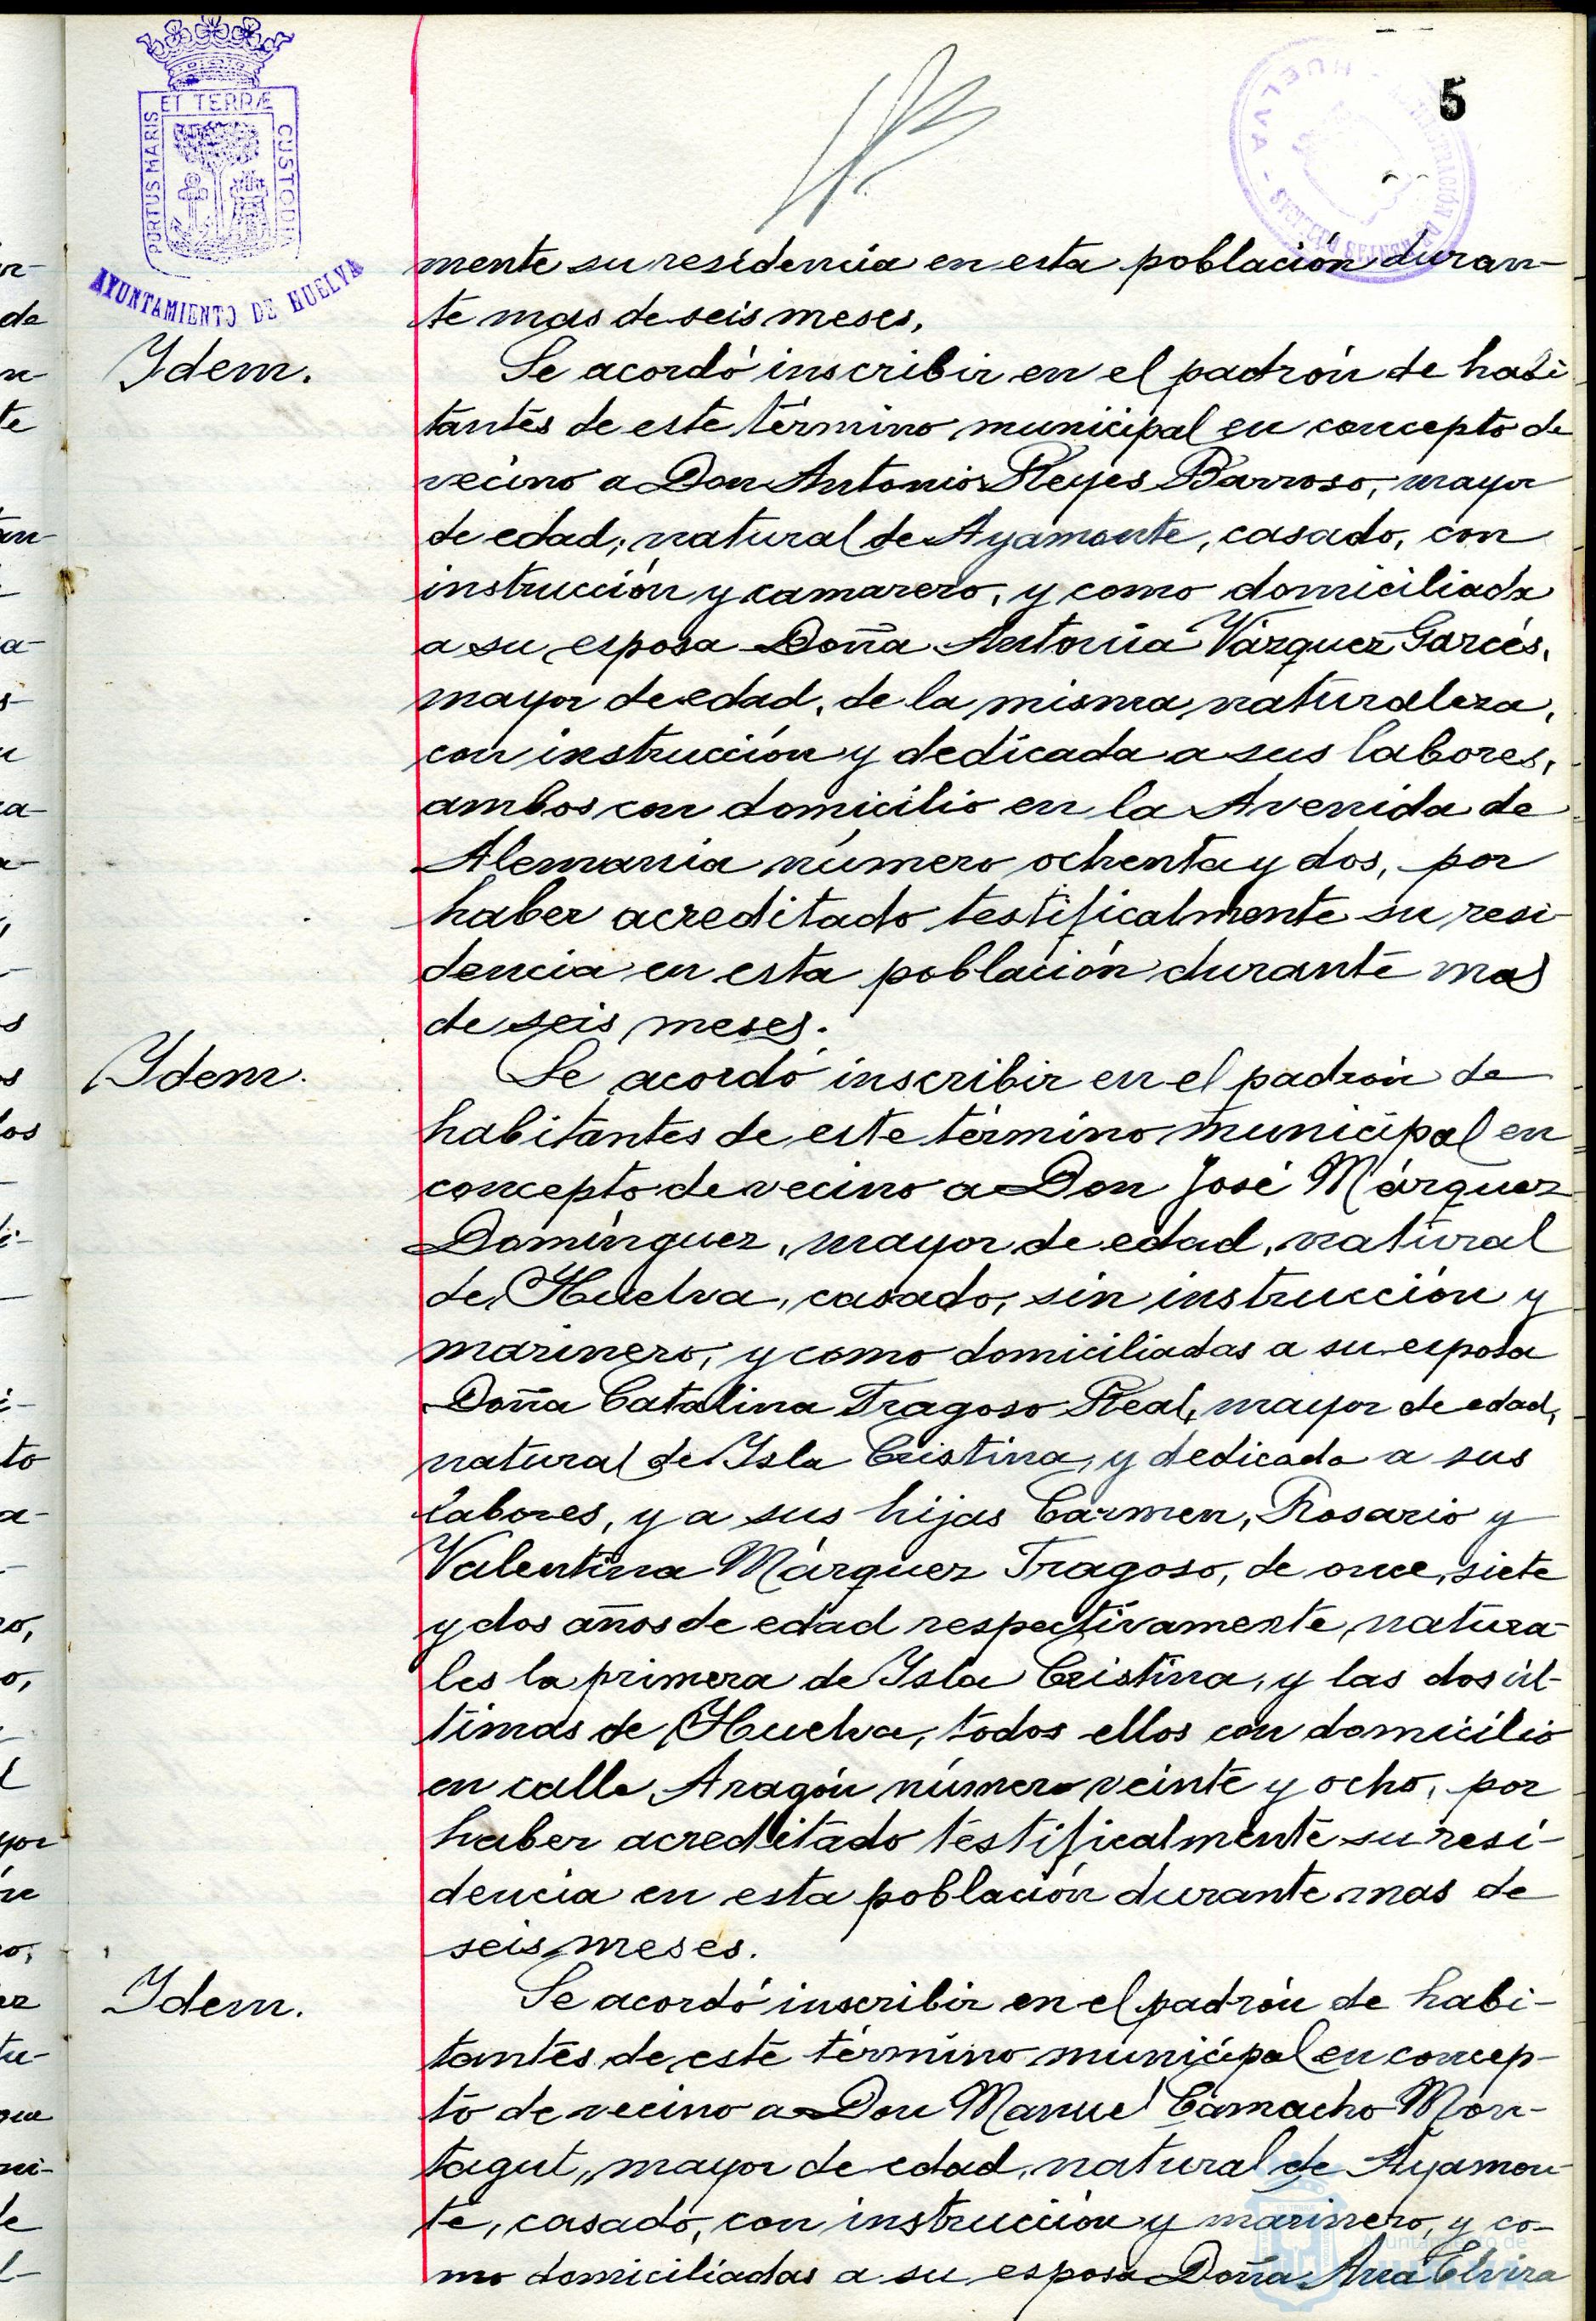 5
ET TERRÆ
PORTUS MARIS
CUSTODIA
AYUNTAMIENTO DE HUELVA
HUELVA
mente su residencia en esta población duran-
te mas de seis meses.
Idem.
Se acordó inscribir en el padrón de habi
tantes de este término municipal en concepto de
vecino a Don Antonio Reyes Barroso, mayor
de edad, natural de Ayamonte, casado, con
instrucción y camarero, y como domiciliada
a su esposa Doña Antonia Vázquez Garcés,
mayor de edad, de la misma naturaleza,
con instrucción y dedicada a sus labores,
ambos con domicilio en la Avenida de
Alemania número ochenta y dos, por
haber acreditado testificalmente su resi-
dencia en esta población durante mas
de seis meses.
Idem.
Se acordó inscribir en el padrón de
habitantes de este término municipal en
concepto de vecino a Don José Márquez
Domínguez, mayor de edad, natural
de Huelva, casado, sin instrucción y
marinero, y como domiciliadas a su esposa
Doña Catalina Fragoso Real, mayor de edad,
natural de Isla Cristina, y dedicada a sus
labores, y a sus hijas Carmen, Rosario y
Valentina Márquez Fragoso, de once, siete
y dos años de edad respectivamente, natura-
les la primera de Isla Cristina, y las dos úl-
timas de Huelva, todos ellos con domicilio
en calle Aragón número veinte y ocho, por
haber acreditado testificalmente su resi-
dencia en esta población durante mas de
seis meses.
Idem.
Se acordó inscribir en el padrón de habi-
tantes de este término municipal en concep-
to de vecino a Don Manuel Camacho Mon-
tagut, mayor de edad, natural de Ayamon-
te, casado, con instrucción y marinero, y co-
mo domiciliadas a su esposa Doña Ana Elvira
Ayuntamiento de
HUELVA